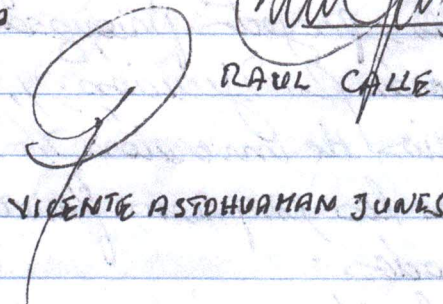 RAUL CALLE
VICENTE ASTOHUAMAN JUNES